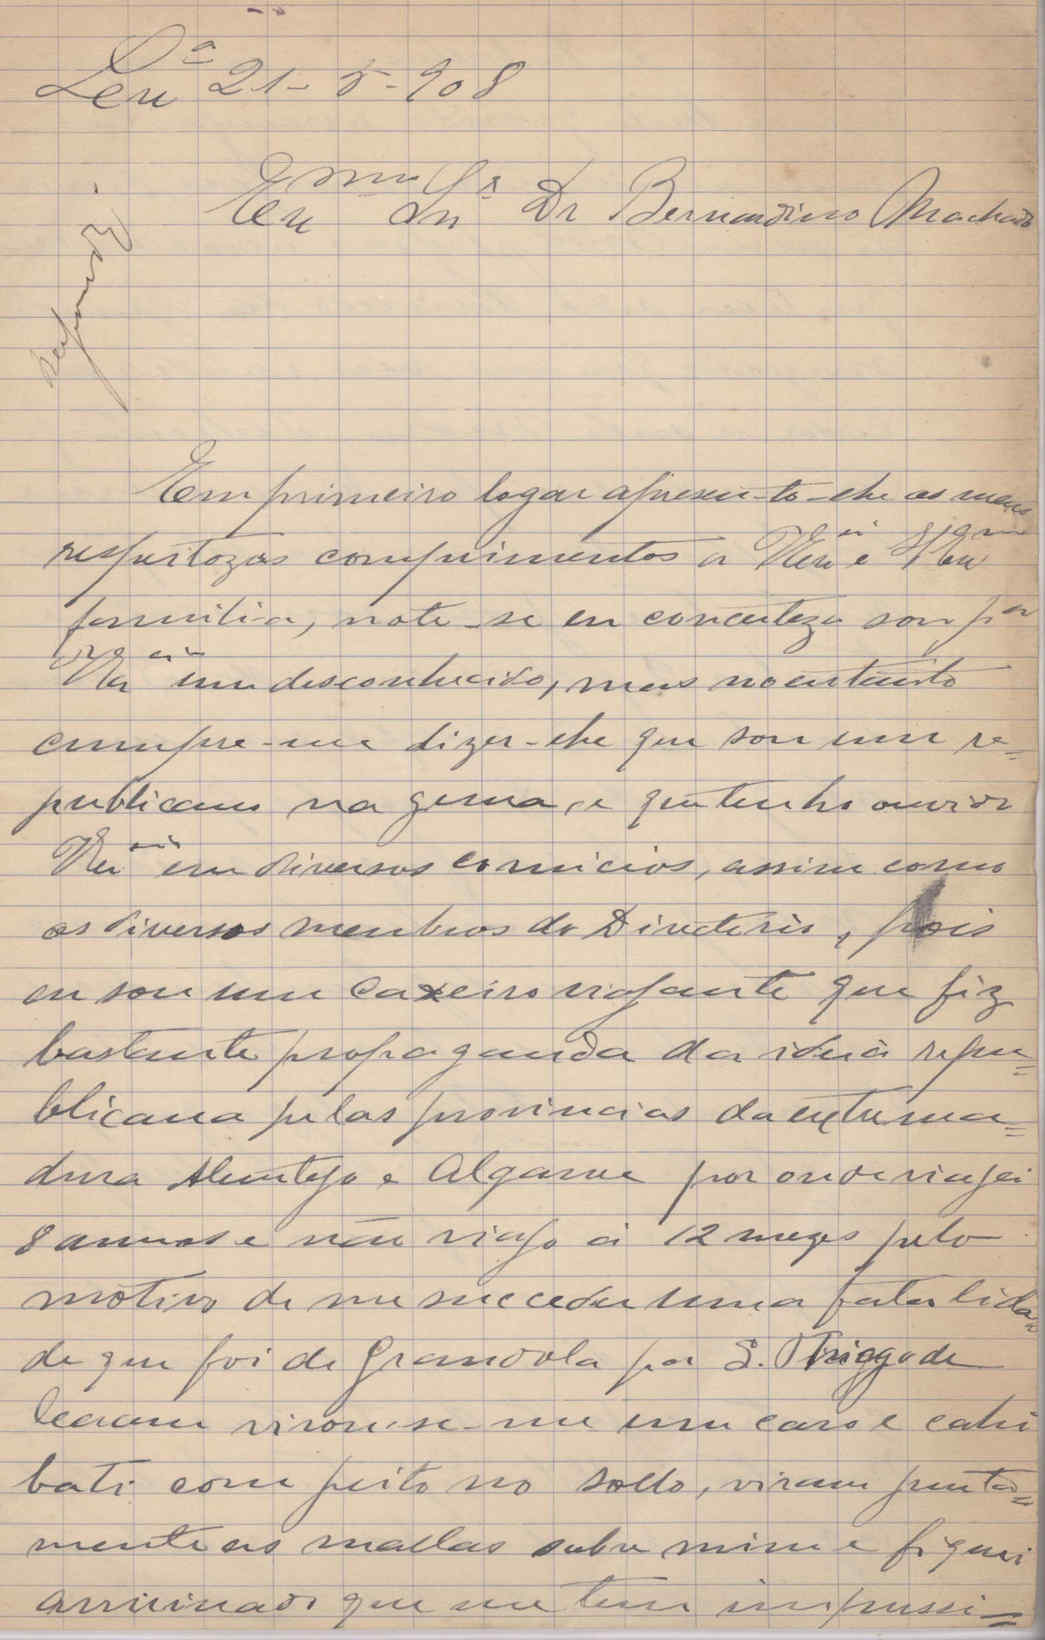 Lxª 21-5-908
Exmo Snr Dr Bernardino Machado
Respondi
Em primeiro logar apresen-to-lhe os meus
respeitozos comprimentos a VExª e Exma
familia, note-se eu concerteza sou pª
VExª um desconhecido, mas no entanto
cumpre-me dizer-lhe que sou um re=
publicano na gema, e que tenho ouvido
VExª em diversos comicios, assim como
os diversos membros do Directorio, pois
eu sou um caxeiro viajante que fiz
bastante propaganda da ideia repu=
blicana pelas provincias da extrema=
dura Alentejo e Algarve por onde viajei
8 annos e não viajo á 12 mezes pelo
motivo de me succeder uma fatalida=
de que foi de Grandola para S. Thiago de
Cacem virou-se-me um carro e cahi
bati com peito no sollo, viram junta=
mente as mallas sobre mim e fiquei
arruinado que me tem impussi=